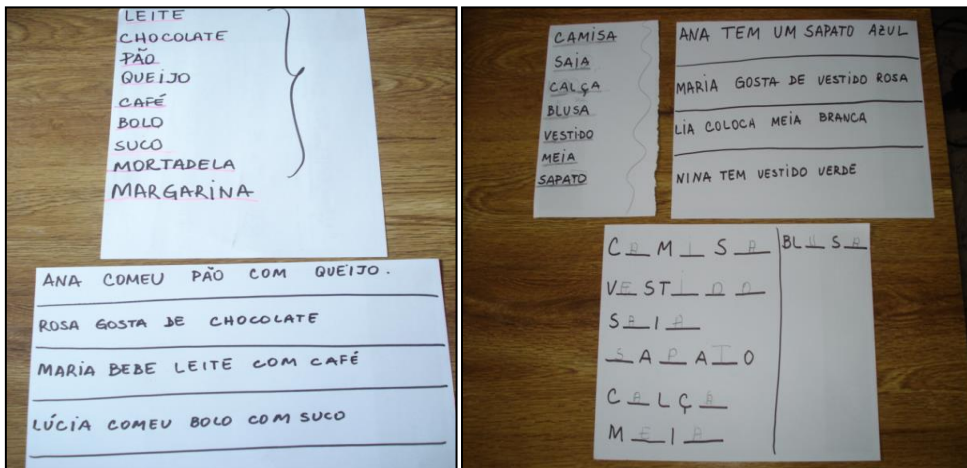 LEITE
CHOCOLATE
PÃO
QUEIJO
CAFÉ
BOLO
SUCO
MORTADELA
MARGARINA
ANA COMEU PÃO COM QUEIJO.
ROSA GOSTA DE CHOCOLATE
MARIA BEBE LEITE COM CAFÉ
LÚCIA COMEU BOLO COM SUCO
CAMISA
SAIA
CALÇA
BLUSA
VESTIDO
MEIA
SAPATO
ANA TEM UM SAPATO AZUL
MARIA GOSTA DE VESTIDO ROSA
LIA COLOCA MEIA BRANCA
NINA TEM VESTIDO VERDE
CAMISA
VESTIDO
SAIA
SAPATO
CALÇA
MEIA
BLUSA